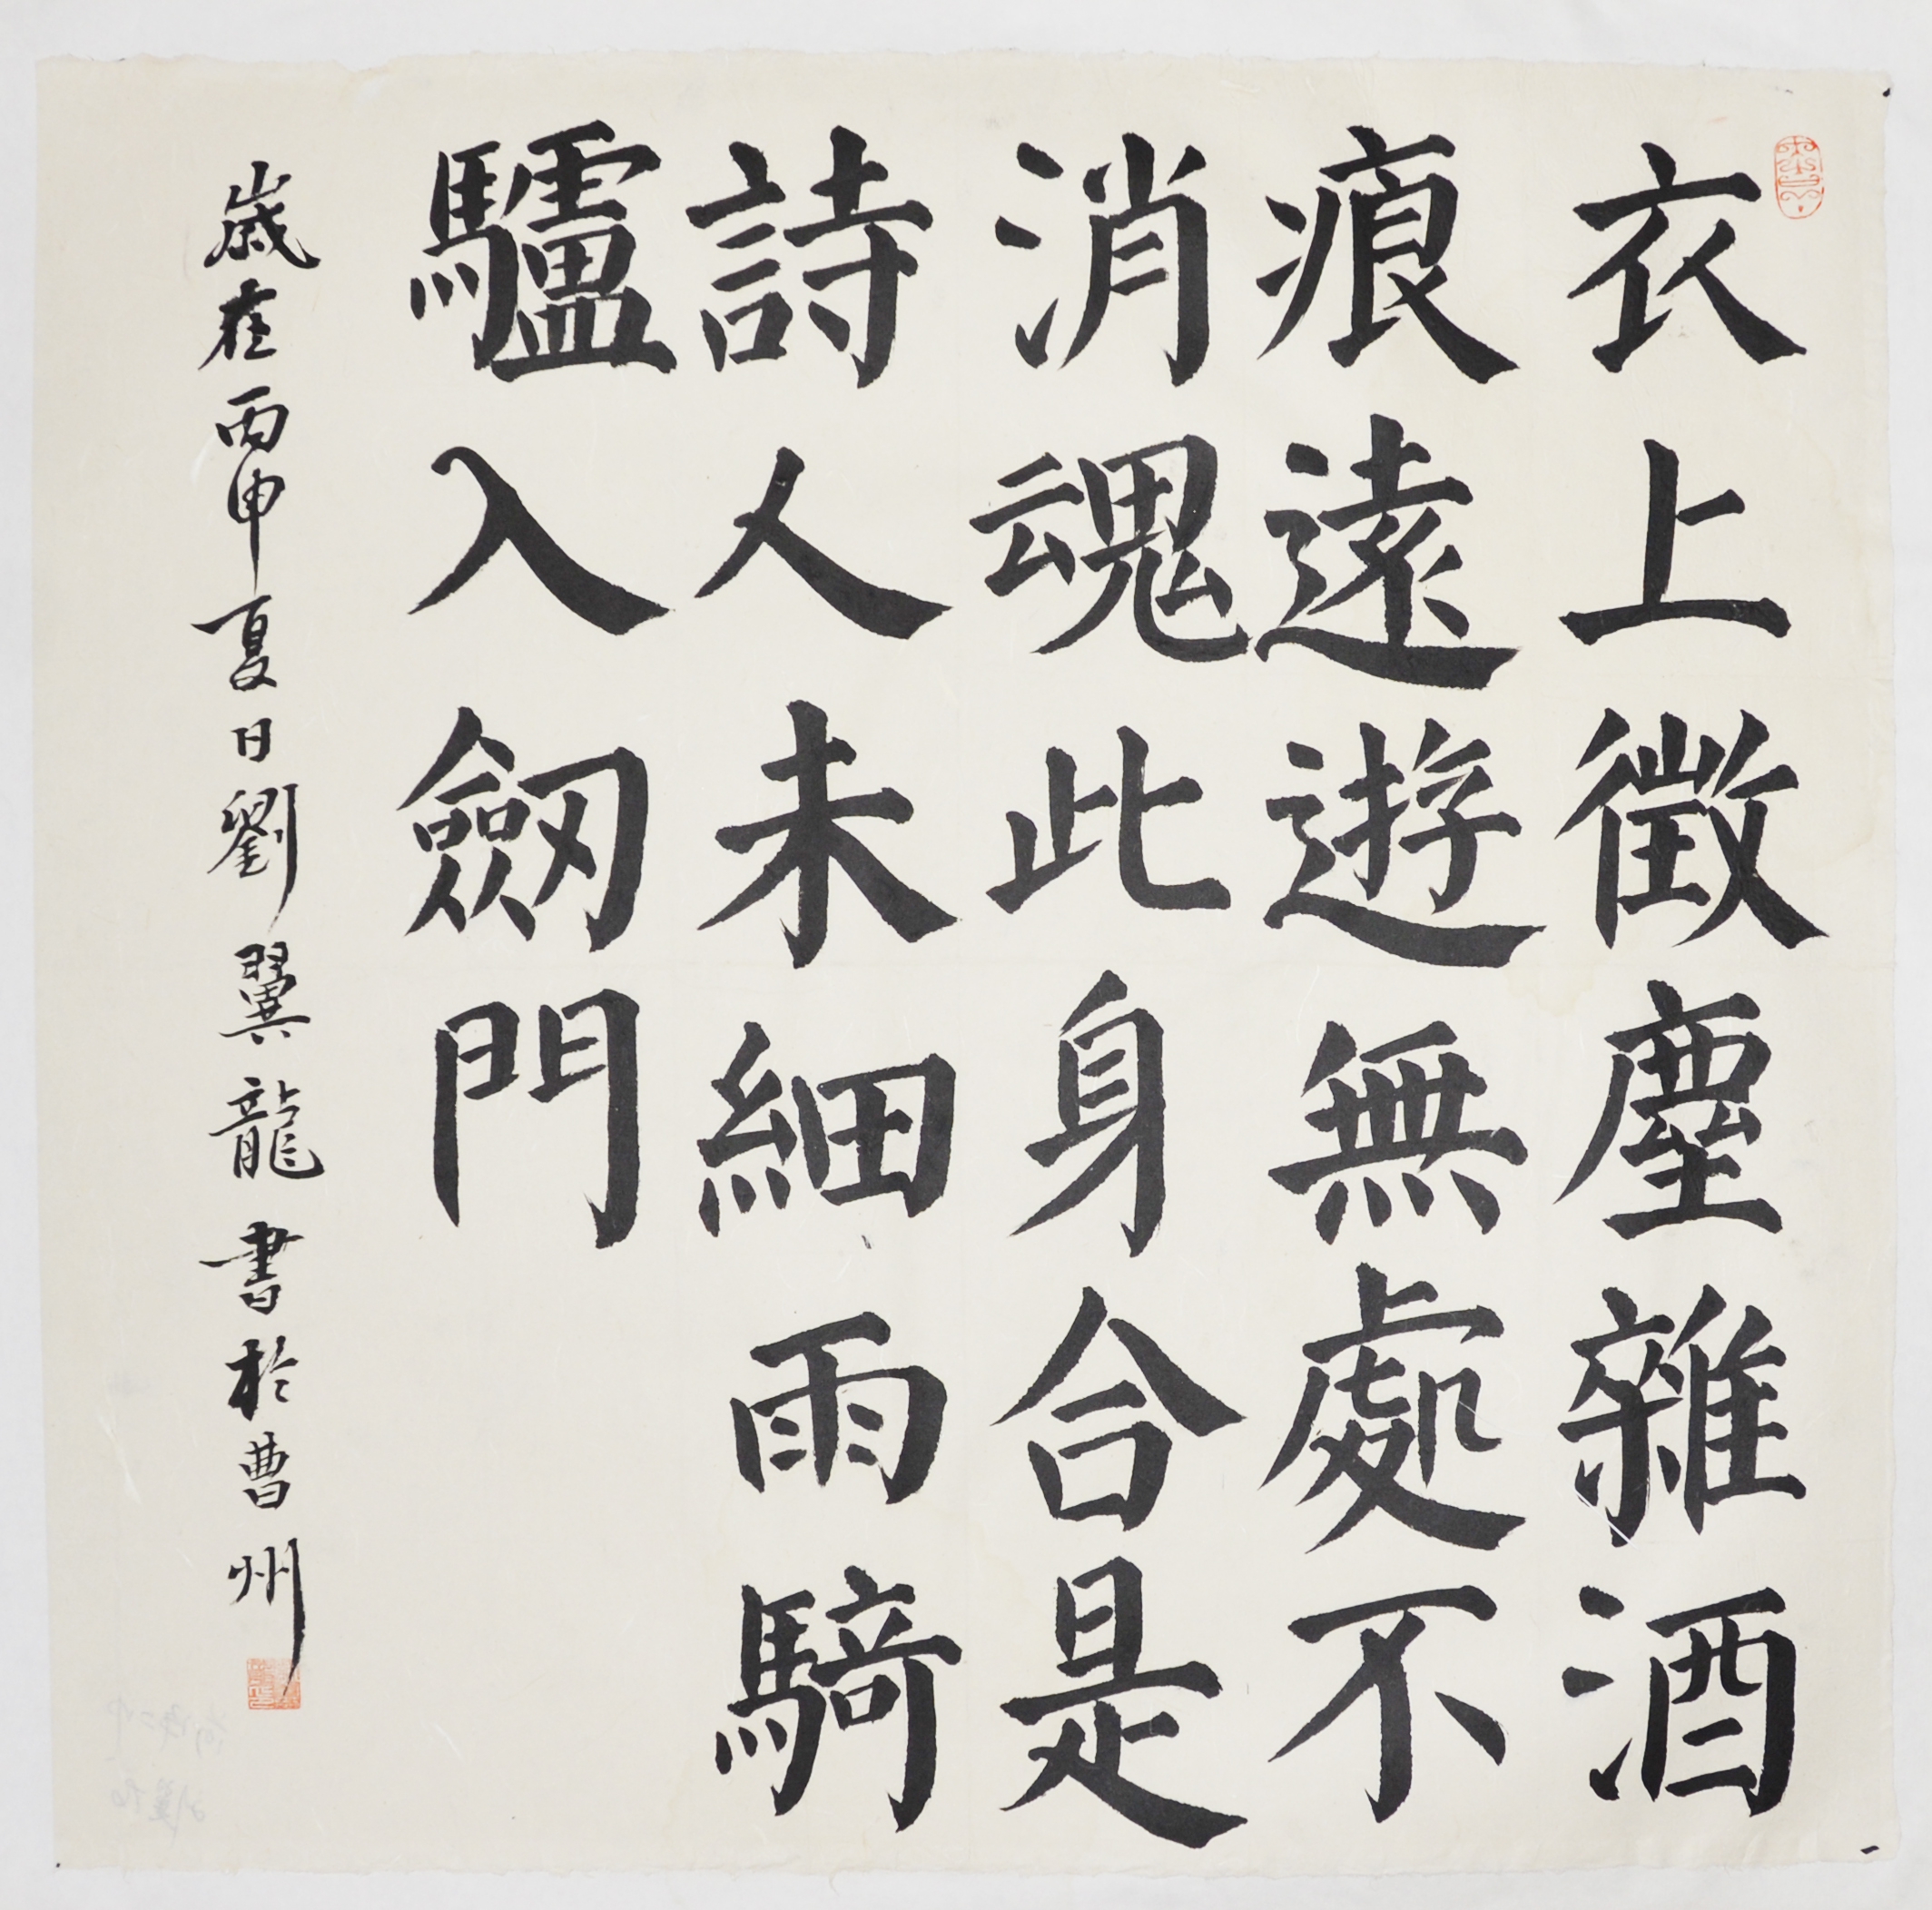 衣上徵塵雜酒
痕遠遊無處不
消魂此身合是
詩人未細雨騎
驢入劒門
歲在丙申夏日劉翼龍書於曹州